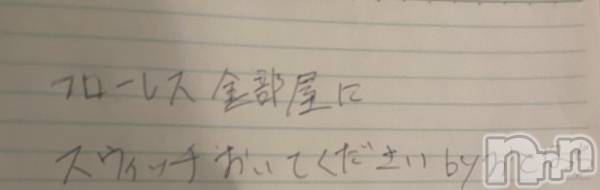 フローレス 全部屋に
スウィッチおいてください by